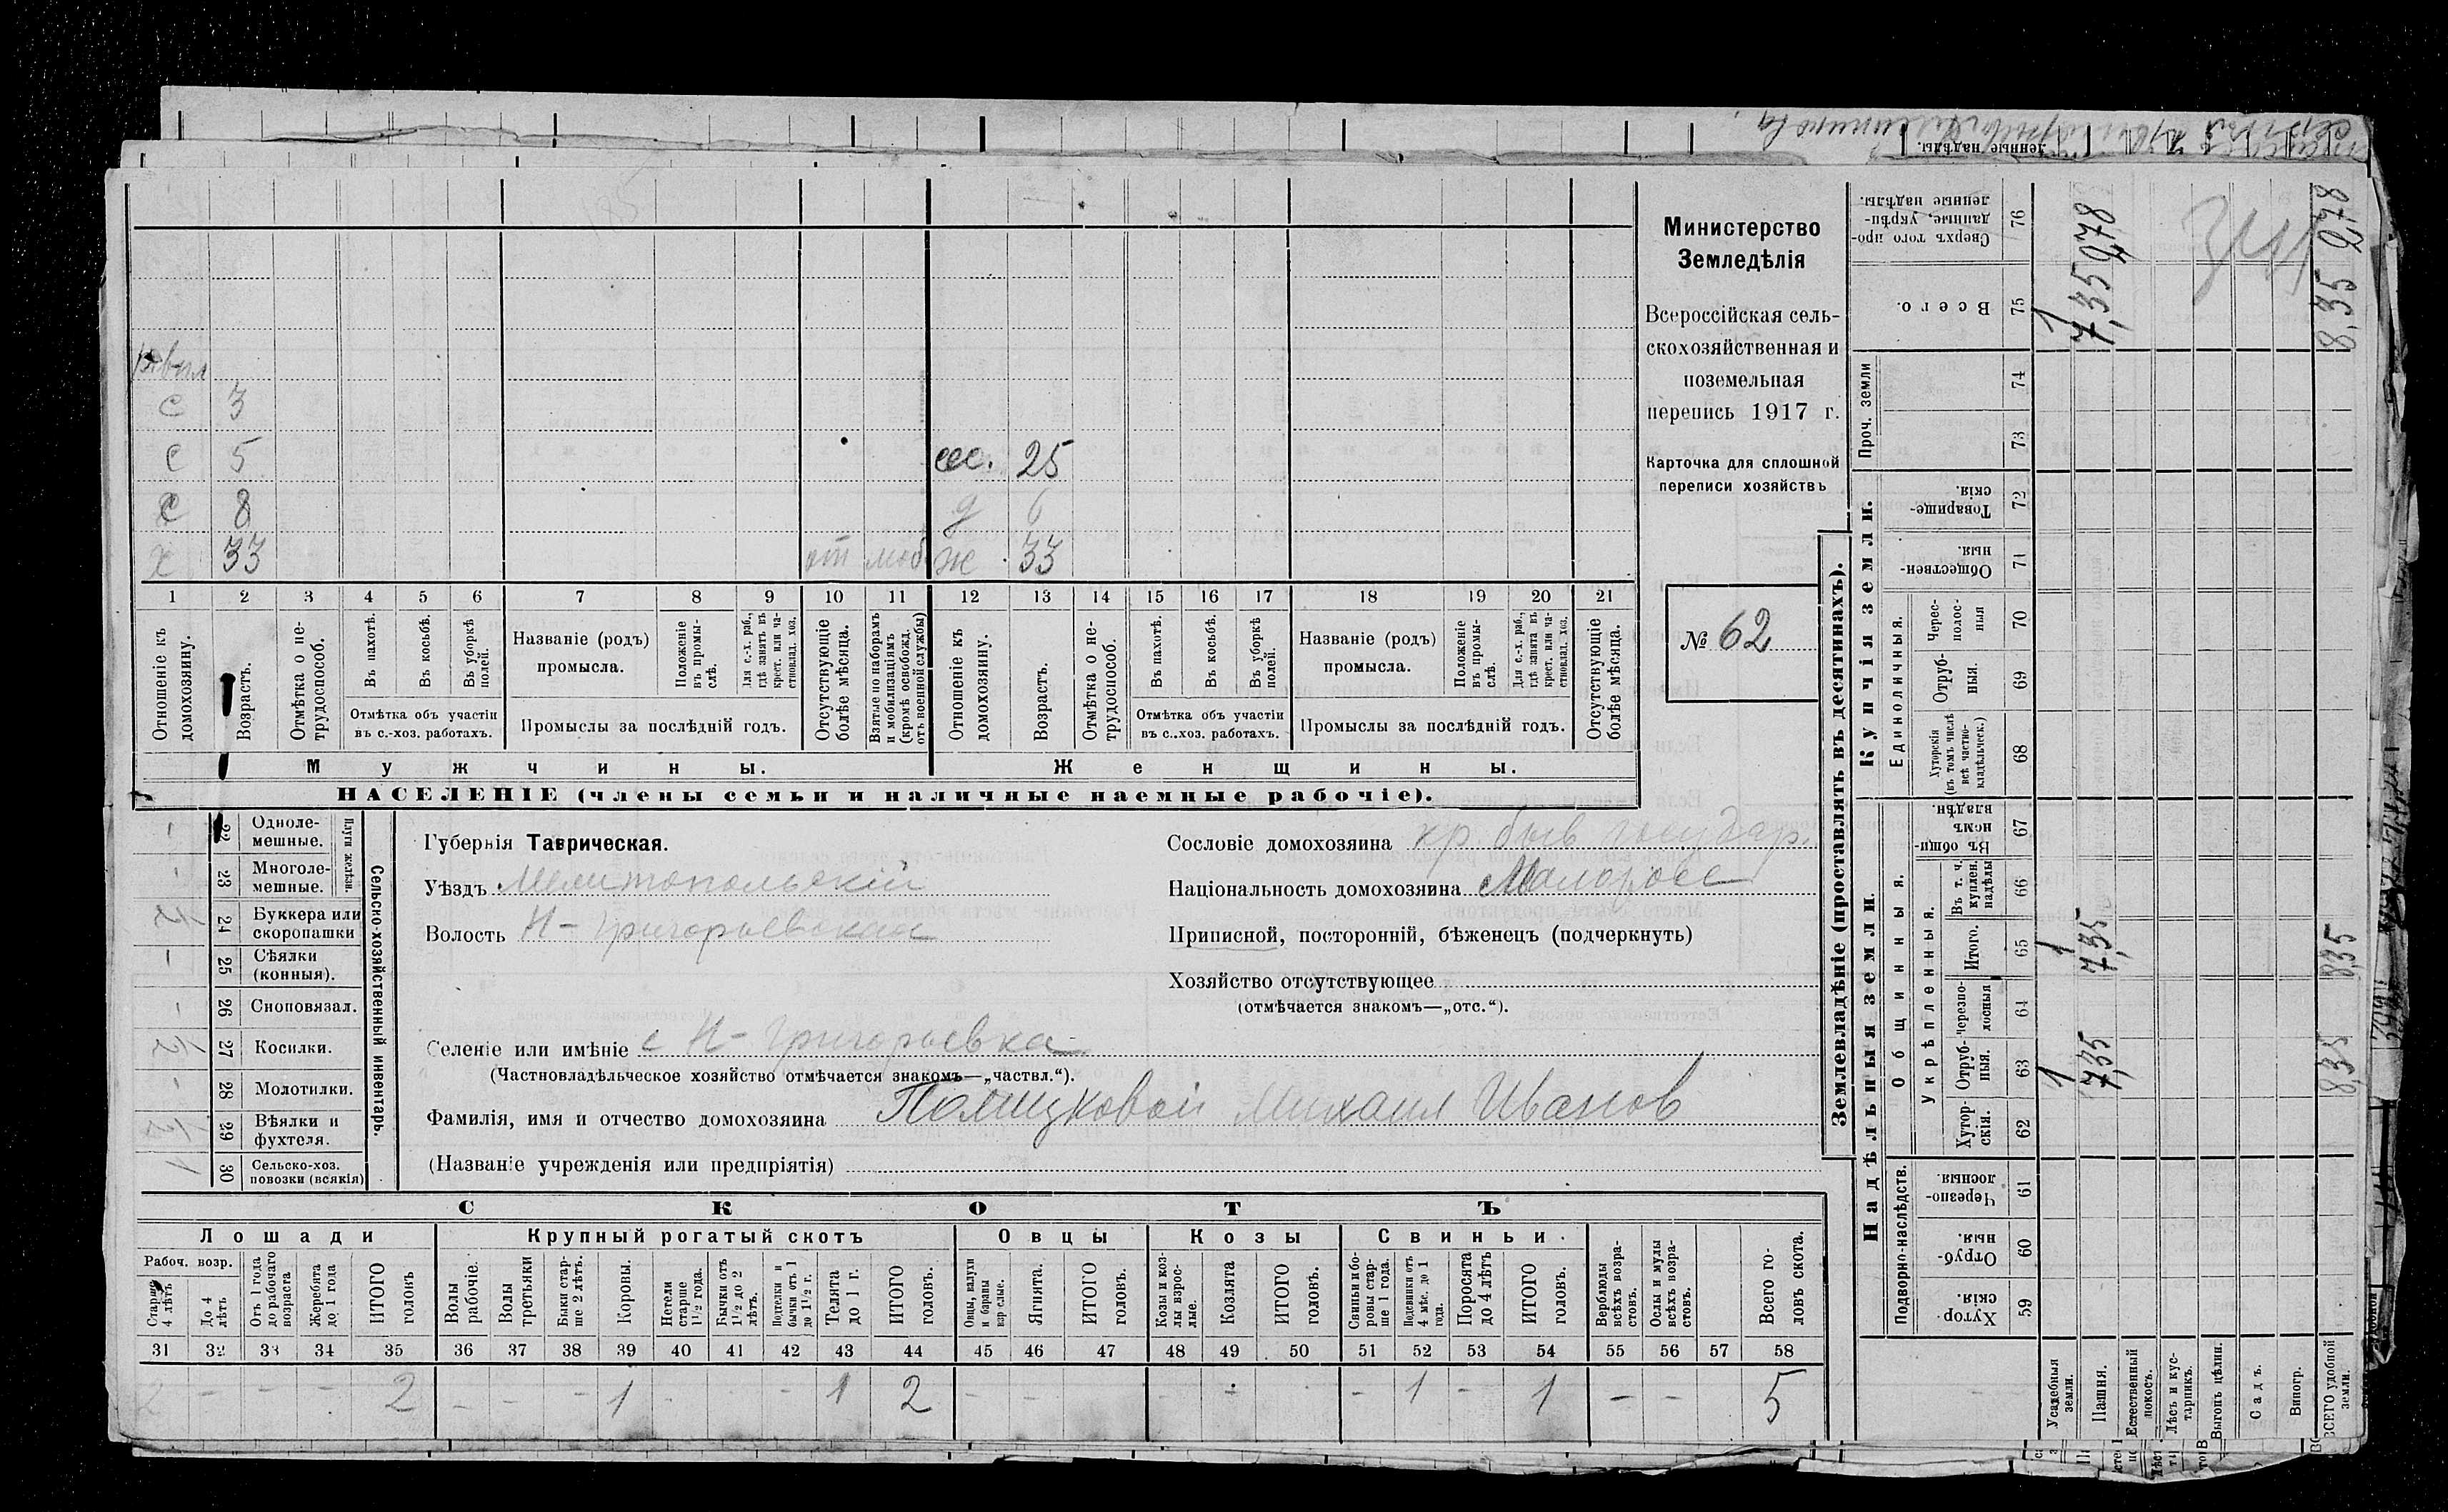 Министерство
Земледѣлія
Всероссійская сель-
скохозяйственная и
поземельная
перепись 1917 г.
Карточка для сплошной
переписи хозяйствъ
№ 62
с 3
с 5
сес. 25
с 8
д 6
х 33 от моб ж 33
1 2 3 4 5 6 7 8 9 10 11 12 13 14 15 16 17 18 19 20 21
Отношеніе къ домохозяину.
Возрастъ.
Отмѣтка о не-трудоспособ.
Въ пахотѣ.
Въ косьбѣ.
Въ уборкѣ полей.
Отмѣтка объ участіи
въ с.-хоз. работахъ.
Названіе (родъ)
промысла.
Положеніе въ промы-слѣ.
Для с.-х. раб., гдѣ занятъ въ крест. или ча-стновлад. хоз.
Промыслы за послѣдній годъ.
Отсутствующіе болѣе мѣсяца.
Взятые по наборамъ и мобилизаціямъ (кромѣ освобожд. отъ военной службы)
Отношеніе къ домохозяину.
Возрастъ.
Отмѣтка о не-трудоспособ.
Въ пахотѣ.
Въ косьбѣ.
Въ уборкѣ полей.
Отмѣтка объ участіи
въ с..хоз. работахъ.
Названіе (родъ)
промысла.
Положеніе въ промы-слѣ.
Для с.-х. раб., гдѣ занята въ крест. или ча-стновлад. хоз.
Промыслы за послѣдній годъ.
Отсутствующіе болѣе мѣсяца.
Мужчины. Женщины.
НАСЕЛЕНІЕ (члены семьи и наличные наемные рабочіе).
Сельско-хозяйственный инвентарь.
Плуги желѣзн.
22 Одноле-
мешные.
23 Многоле-
мешные.
24 Буккера или
скоропашки
25 Сѣялки
(конныя).
26 Сноповязал.
27 Косилки.
28 Молотилки.
29 Вѣялки и
фухтеля.
30 Сельско-хоз.
повозки (всякія)
Губернія Таврическая.
Уѣздъ Мелитопольскій
Волость Н-Григорьевская
Селеніе или имѣніе с Н-Григорьевка
(Частновладѣльческое хозяйство отмѣчается знакомъ—„частвл.“).
Фамилія, имя и отчество домохозяина Полицковой Михаил Иванов
(Названіе учрежденія или предпріятія)
Сословіе домохозяина кр. быв государ.
Національность домохозяина Малоросс
Приписной, посторонній, бѣженецъ (подчеркнуть)
Хозяйство отсутствующее
(отмѣчается знакомъ—„отс.“).
СКОТЪ
Лошади Крупный рогатый скотъ Овцы Козы Свиньи.
Рабоч. возр.
Старше 4 лѣтъ
До 4 лѣтъ
Отъ 1 года до рабочаго возраста
Жеребята до 1 года
ИТОГО головъ
Волы рабочіе.
Волы третьяки
Быки стар-ше 2 лѣтъ.
Коровы.
Нетели старше 1½ года.
Бычки отъ 1½ до 2 лѣтъ.
Подтелки и бычки отъ 1 до 1½ г.
Телята до 1 г.
ИТОГО головъ.
Овцы, валухи и бараны взрослые.
Ягнята.
ИТОГО головъ.
Козы и коз-лы взрос-лые.
Козлята
ИТОГО головъ.
Свиньи и бо-ровы стар-ше 1 года.
Подсвинки отъ 4 мѣс. до 1 года.
Поросята до 4 лѣтъ
ИТОГО головъ.
Верблюды всѣхъ возра-стовъ.
Ослы и мулы всѣхъ возра-стовъ.
Всего го-ловъ скота.
31 32 33 34 35 36 37 38 39 40 41 42 43 44 45 46 47 48 49 50 51 52 53 54 55 56 57 58
2 - - - 2 - - - 1 - - 1 2 - - - - - 1 - 1 - - 5
Землевладѣніе (проставлять въ десятинахъ).
Надѣльныя земли. Купчія земли.
Подворно-наслѣдств.
Общинныя.
Укрѣпленныя.
Единоличныя.
Проч. земли
Хутор-скія. 59
Отруб-ныя. 60
Черезпо-лосныя. 61
Хутор-скія. 62
Отруб-ныя. 63
Черезпо-лосныя 64
Итого. 65
Въ т. ч. куплен. надѣлы 66
Въ общи-номъ владѣн. 67
Хуторскія (въ томъ числѣ всѣ частно-владѣльческ.) 68
Отруб-ныя. 69
Черес-полос-ныя 70
Обществен-ныя. 71
Товарище-скія. 72
73
74
Всего. 75
Сверхъ того про-данные, укрѣп-ленные надѣлы. 76
Усадебныя земли. 1 1 1
Пашня. 7,35 7,35 7,35 2,78
Естественный покосъ.
Лѣсъ и кус-тарникъ.
Выгонъ цѣлин.
Садъ.
Виногр.
ВСЕГО удобной земли. 8,35 8,35 8,35 2,78
ленные надѣлы.